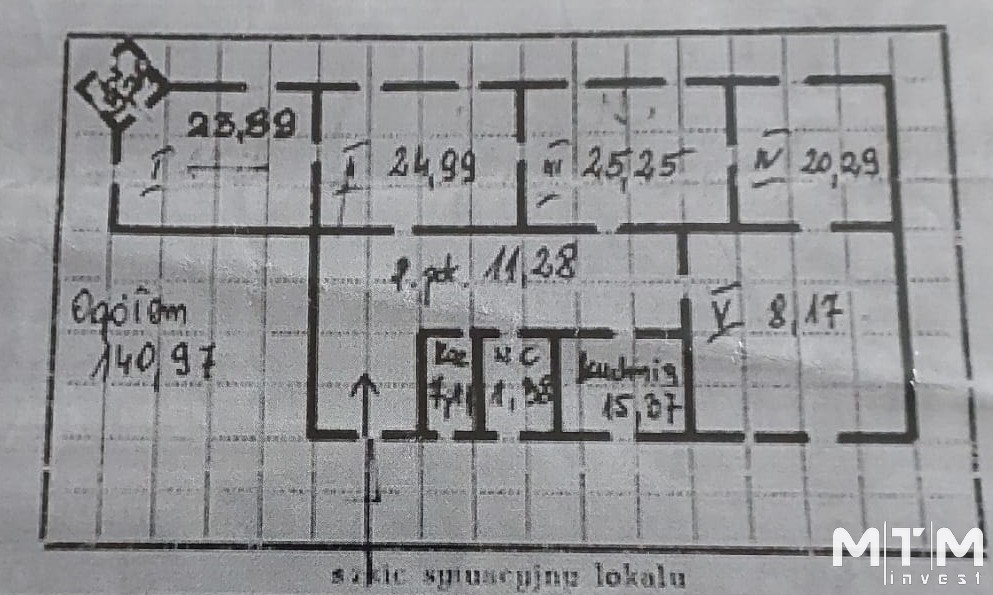 23,89
I
I 24,99
III 25,25
IV 20,29
p. pok. 11,28
Ogółem
140,97
V 8,17
W C
1,38
kuchnia
15,37
szkic sytuacyjny lokalu
MTM
invest